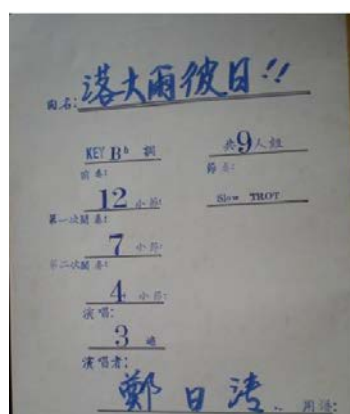 曲名: 落大雨彼日!!
KEY Bb 調
共9人組
前奏:
節奏:
12 小節:
Slow TROT
第一次間奏:
7 小節:
第二次間奏:
4 小節:
演唱:
3 遍
演唱者:
鄭日清. 用譜: